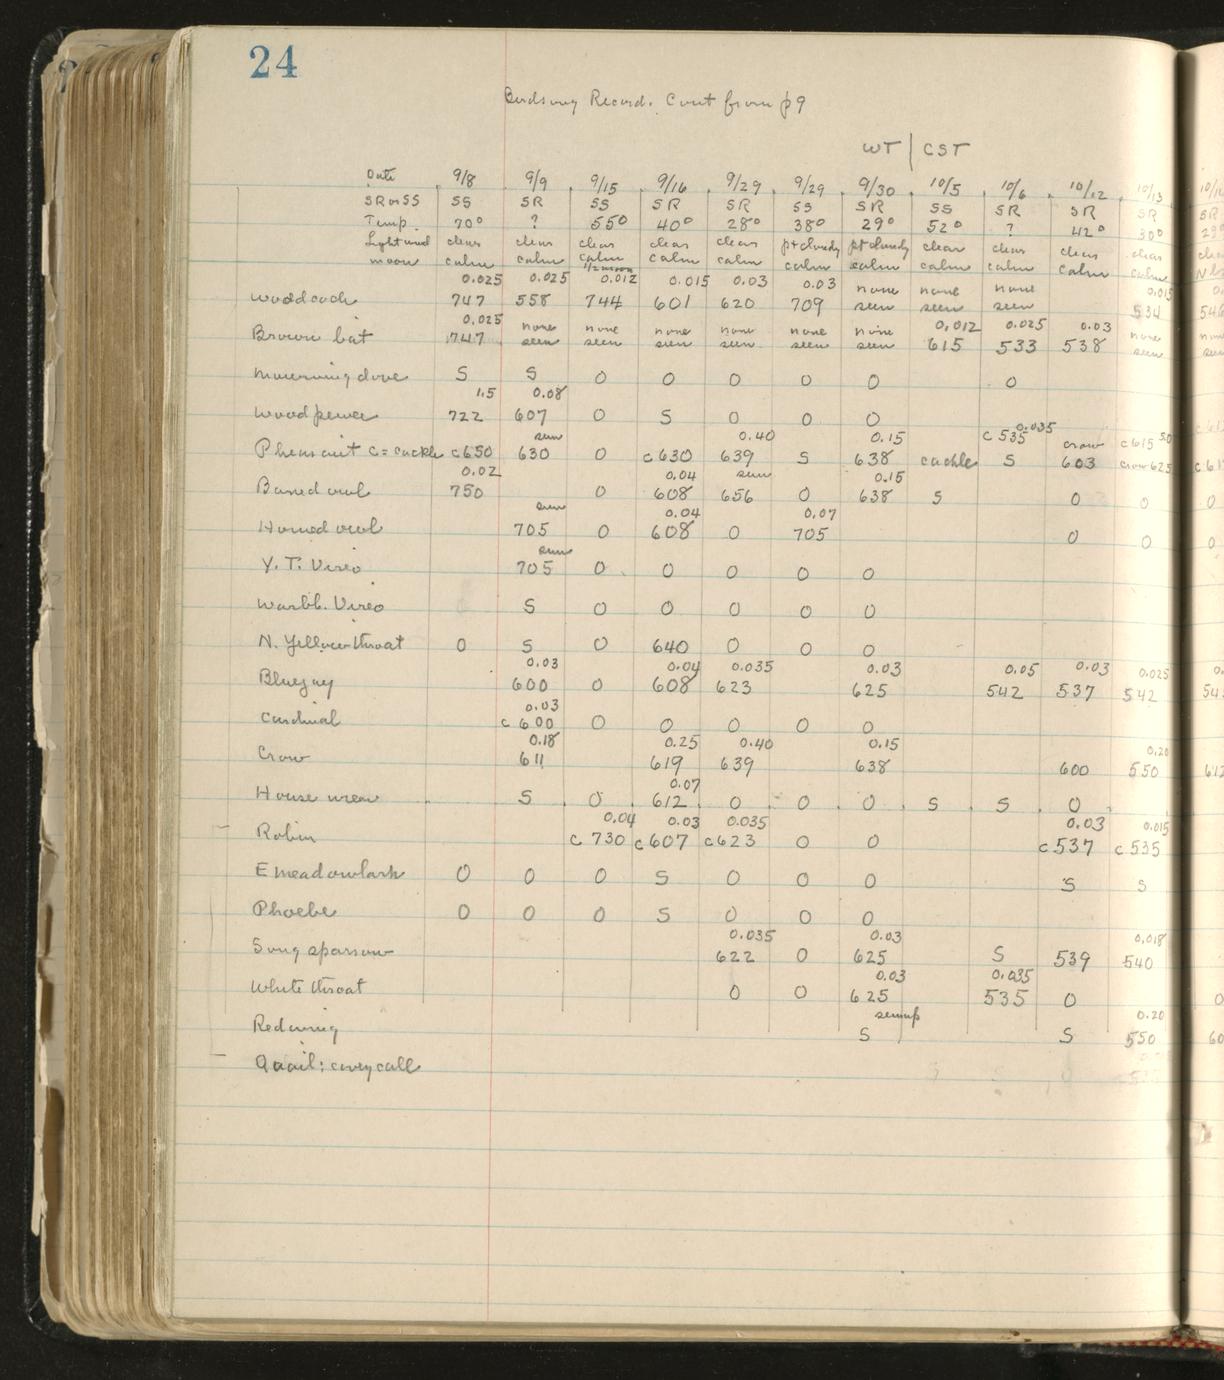 24
Birdsong Record. Cont from p9
WT | CST
Date 9/8 9/9 9/15 9/16 9/29 9/29 9/30 10/5 10/6 10/12 10/13
SR or SS SS SR SS SR SR SS SR SS SR SR SR SR
Temp 70° ? 55° 40° 28° 38° 29° 52° ? 42° 30° 29°
Light wind clear clear clear clear clear pt cloudy pt cloudy clear clear clear clear
moon calm calm calm calm calm calm calm calm calm calm calm
1/2 moon
0.025 0.025 0.012 0.015 0.03 0.03 none none none 0.015
Woodcock 747 558 744 601 620 709 seen seen seen 534 546
0.025 none none none none none none 0.012 0.025 0.03 none
Brown bat 747 seen seen seen seen seen seen 615 533 538 seen
Mourning dove S S 0 0 0 0 0 0
1.5 0.08
Wood pewee 722 607 0 S 0 0 0
sun 0.40 0.15 0.035 crow
Pheasant C = cackle c650 630 0 c630 639 S 638 cackle c535 S 603 c615 crow 625
0.02 0.04 sun 0.15
Barred owl 750 0 608 656 0 638 S 0 0 0
sun 0.04 0.07
Horned owl 705 0 608 0 705 0 0 0
sun
Y. T. Vireo 705 0 0 0 0 0
Warbl. Vireo S 0 0 0 0 0
N. Yellowthroat 0 S 0 640 0 0 0
0.03 0.04 0.035 0.03 0.05 0.03 0.025
Bluejay 600 0 608 623 625 542 537 542
0.03
Cardinal c600 0 0 0 0 0
0.18 0.25 0.40 0.15 0.20
Crow 611 619 639 638 600 550 612
0.07
House wren S 0 612 0 0 0 S S 0
0.04 0.03 0.035 0.03 0.015
Robin c730 c607 c623 0 0 c537 c535
E meadowlark 0 0 0 S 0 0 0 S S
Phoebe 0 0 0 S 0 0 0
0.035 0.03 0.018
Song sparrow 622 0 625 S 539 540
0.03 0.035
White throat 0 0 625 535 0 0
sunup 0.20
Redwing S S 550 60
Quail: covey call